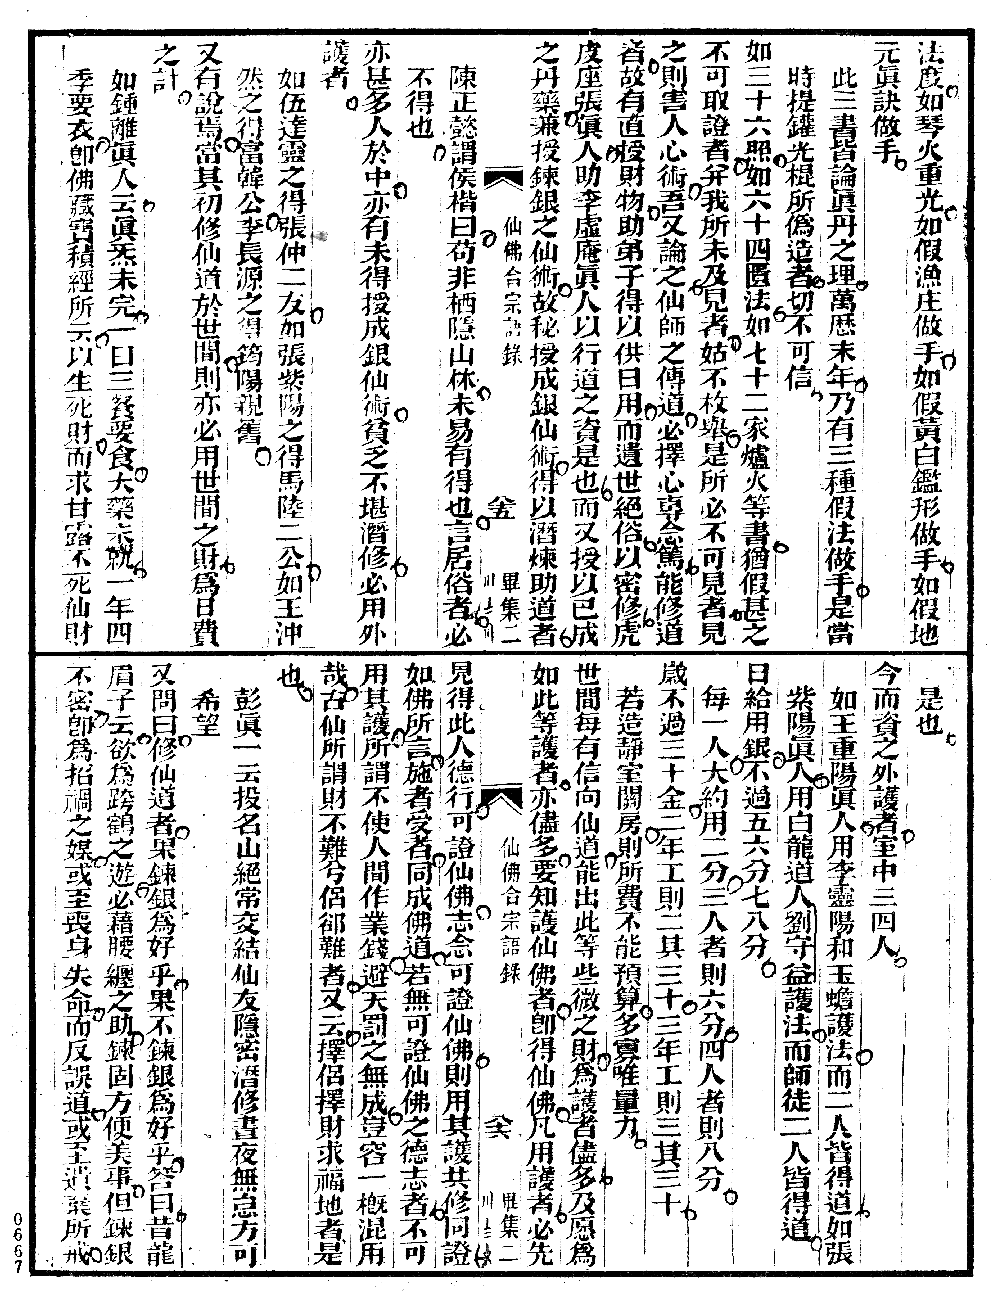 法度如琴火重光如假漁庄做手如假黃白鑑形做手如假地
元眞訣做手
此三書皆論眞丹之理萬歷末年乃有三種假法做手是當
時提鑵光棍所僞造者切不可信
如三十六照如六十四匱法如七十二家爐火等書猶假甚之
不可取證者并我所未及見者姑不枚舉是所必不可見者見
之則害人心術吾又論之仙師之傳道必擇心專念篤能修道
者故有直授財物助弟子得以供日用而遺世絕俗以密修虎
皮座張眞人助李虛庵眞人以行道之資是也而又授以已成
之丹藥兼授鍊銀之仙術故秘授成銀仙術得以潛煉助道者
仙佛合宗語錄
六五
畢集二
陳正懿謂侯楷曰苟非栖隱山林未易有得也言居俗者必
不得也
亦甚多人於中亦有未得授成銀仙術貧乏不堪潛修必用外
護者
如伍達靈之得張仲二友如張紫陽之得馬陸二公如王沖
然之得富韓公李長源之得筠陽親舊
又有說焉當其初修仙道於世間則亦必用世間之財爲日費
之計
如鍾離眞人云眞炁未完一日三餐要食大藥未就一年四
季要衣卽佛藏寶積經所云以生死財而求甘露不死仙財
是也
今而資之外護者室中三四人
如王重陽眞人用李靈陽和玉蟾護法而二人皆得道如張
紫陽眞人用白龍道人劉守益護法而師徒二人皆得道
日給用銀不過五六分七八分
每一人大約用二分三人者則六分四人者則八分
歲不過三十金二年工則二其三十三年工則三其三十
若造靜室關房則所費不能預算多寡唯量力
世間每有信向仙道能出此等些微之財爲護者儘多及愿爲
如此等護者亦儘多要知護仙佛者卽得仙佛凡用護者必先
仙佛合宗語錄
六六
畢集二
見得此人德行可證仙佛志念可證仙佛則用其護共修同證
如佛所言施者受者同成佛道若無可證仙佛之德志者不可
用其護所謂不使人間作業錢避天罰之無成豈容一槪混用
哉古仙所謂財不難兮侶卻難者又云擇侶擇財求福地者是
也
彭眞一云投名山絕常交結仙友隱密潛修晝夜無怠方可
希望
又問曰修仙道者果鍊銀爲好乎果不鍊銀爲好乎答曰昔龍
眉子云欲爲跨鶴之遊必藉腰纏之助鍊固方便美事但鍊銀
不密卽爲招禍之媒或至喪身失命而反誤道或至遺業所戒
0667